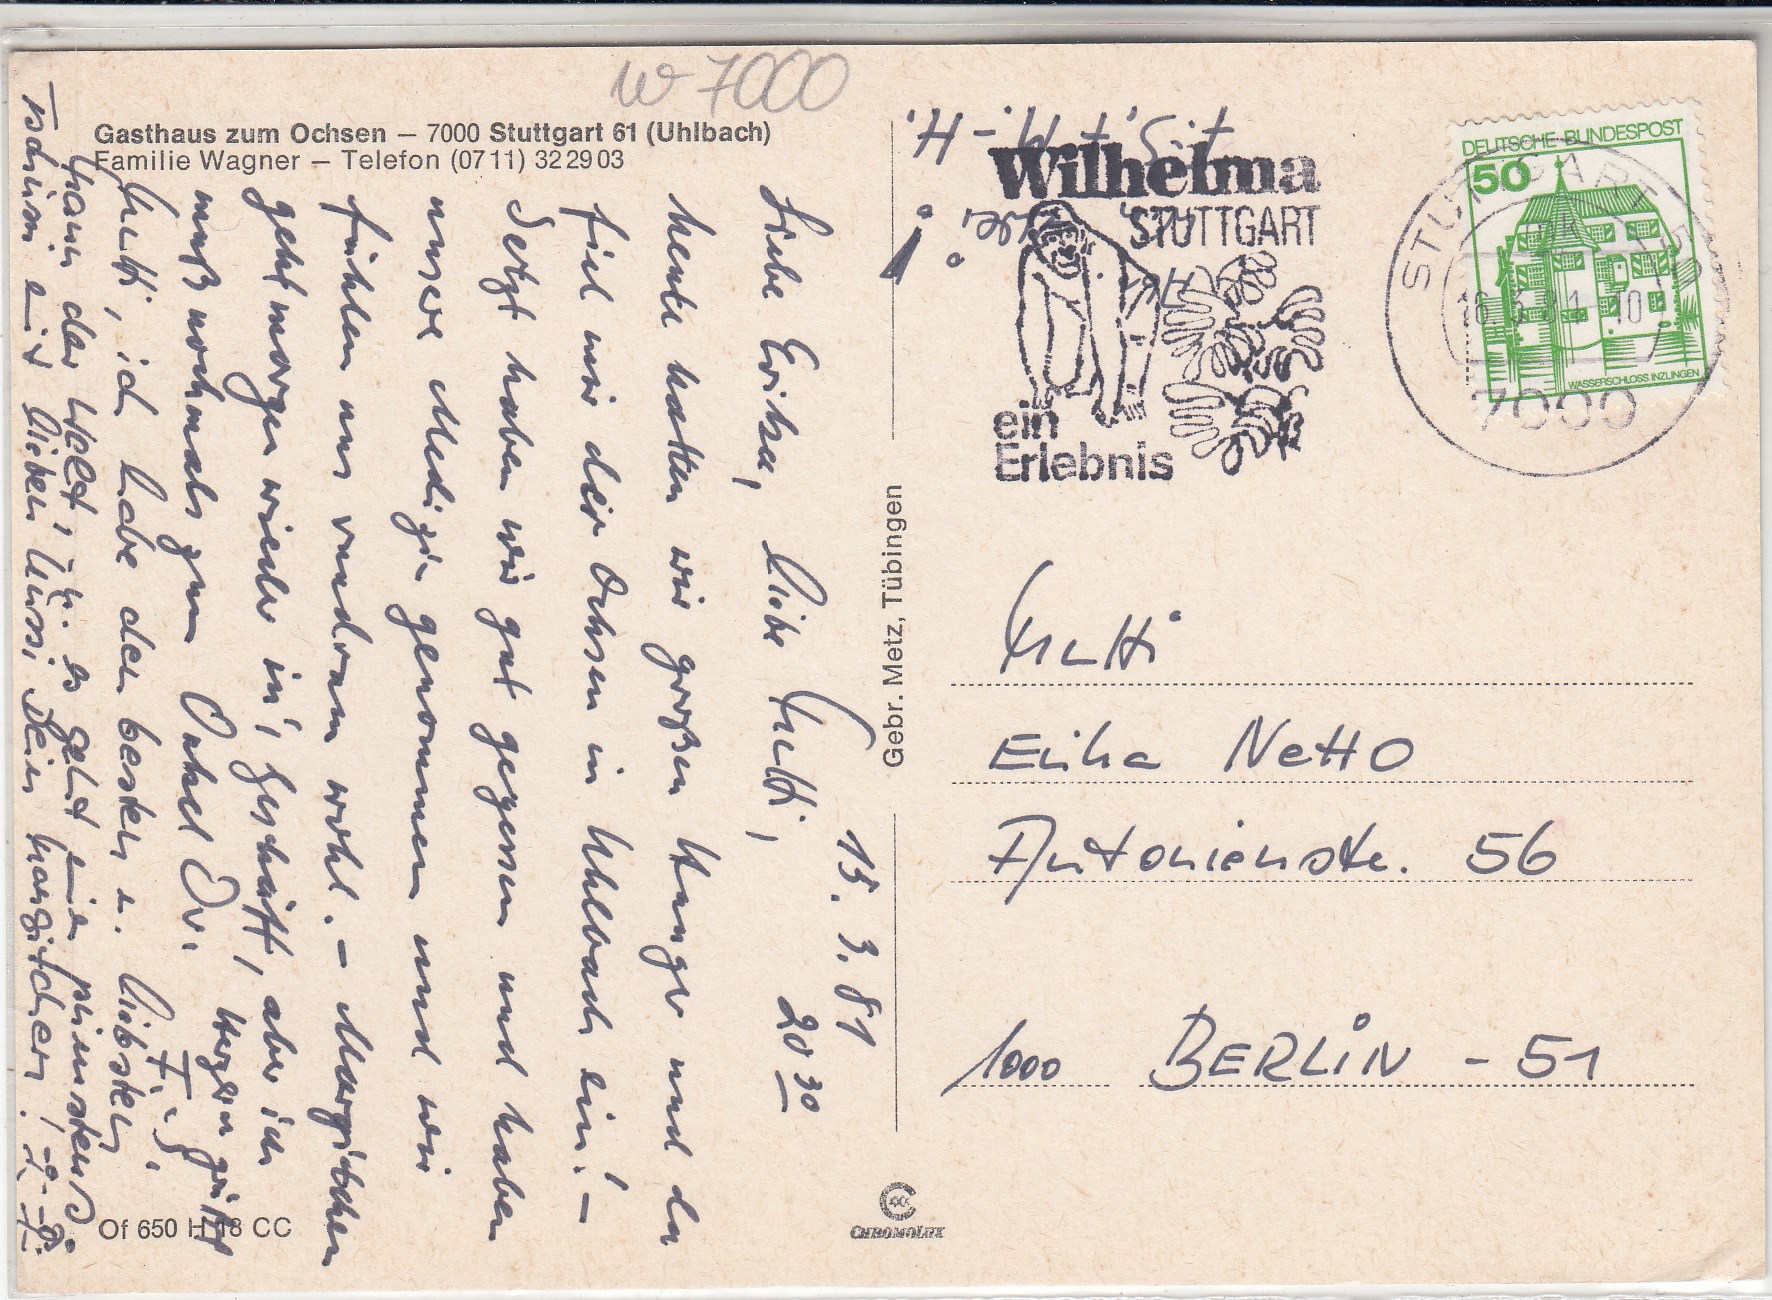 W 7000
Gasthaus zum Ochsen – 7000 Stuttgart 61 (Uhlbach)
Familie Wagner – Telefon (07 11) 32 29 03
15. 3. 81
20 30
Liebe Erika, liebe Mutti,
heute hatten wir großen Hunger und da
fiel mir der Ochsen in Uhlbach ein! –
Jetzt haben wir gut gegessen und haben
unsere Medizin genommen und wir
fühlen uns rundram wohl. – Margitchen
geht morgen wieder in's Geschäft, aber ich
muß nochmals zum Onkel Dr.
Herzen
Mutti, ich habe den besten u. liebsten
Mann der Welt, u. es geht mir
Tschüssi und lieben Kussi Dein Margitchen!
Of 650 H 18 CC
Gebr. Metz, Tübingen
CHROMOLUX
Wilhelma
STUTTGART
ein
Erlebnis
DEUTSCHE BUNDESPOST
50
WASSERSCHLOSS INZLINGEN
STUTTGART
7000
Mutti
Erika Netto
Antonienstr. 56
1000 BERLIN - 51